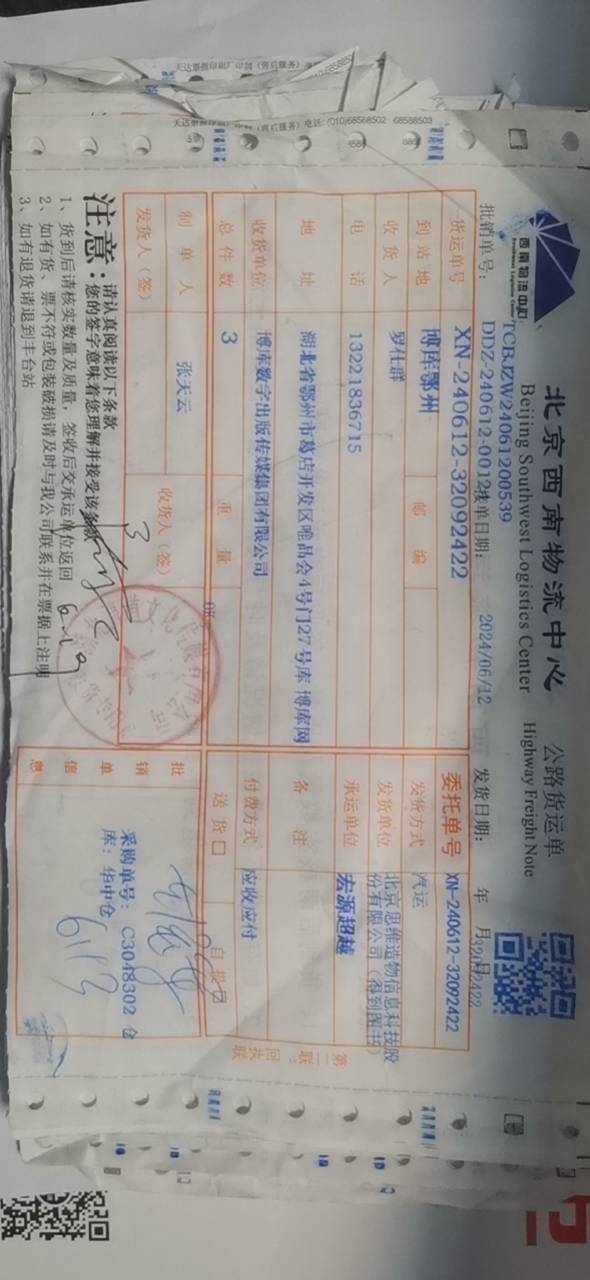 天达票据印刷厂印制（售后服务）电话：(010)68568502 68588503
西南物流中心
Southwest Logistics Center
北京西南物流中心 公路货运单
Beijing Southwest Logistics Center Highway Freight Note
TCBJZW24061200539
批销单号：DDZ-240612-0012 接单日期： 2024/06/12 发货日期： 年 月 日
32092422
货运单号 XN-240612-32092422 委托单号 XN-240612-32092422
到站地 博库鄂州 邮编 发货方式 汽运
收货人 罗仕群 发货单位 北京思维造物信息科技股份有限公司（得到图书）
电话 13221836715 承运单位 宏源超越
地址 湖北省鄂州市葛店开发区唯品会4号门27号库 博库网 备注
收货单位 博库数字出版传媒集团有限公司 付费方式 应收应付
总件数 3 重量 送货口 自提
制单人 张天云 收货人（签） 3
发货人（签）
批销单信息 采购单号：C3048302 仓库：华中仓
6.13
注意：请认真阅读以下条款
您的签字意味着您理解并接受该条款
1、货到后请核实数量及质量，签收后交承运单位返回
2、如有货、票不符或包装破损请及时与我公司联系并在票据上注明
3、如有退货请退到丰台站
6-19
第二联：回执联